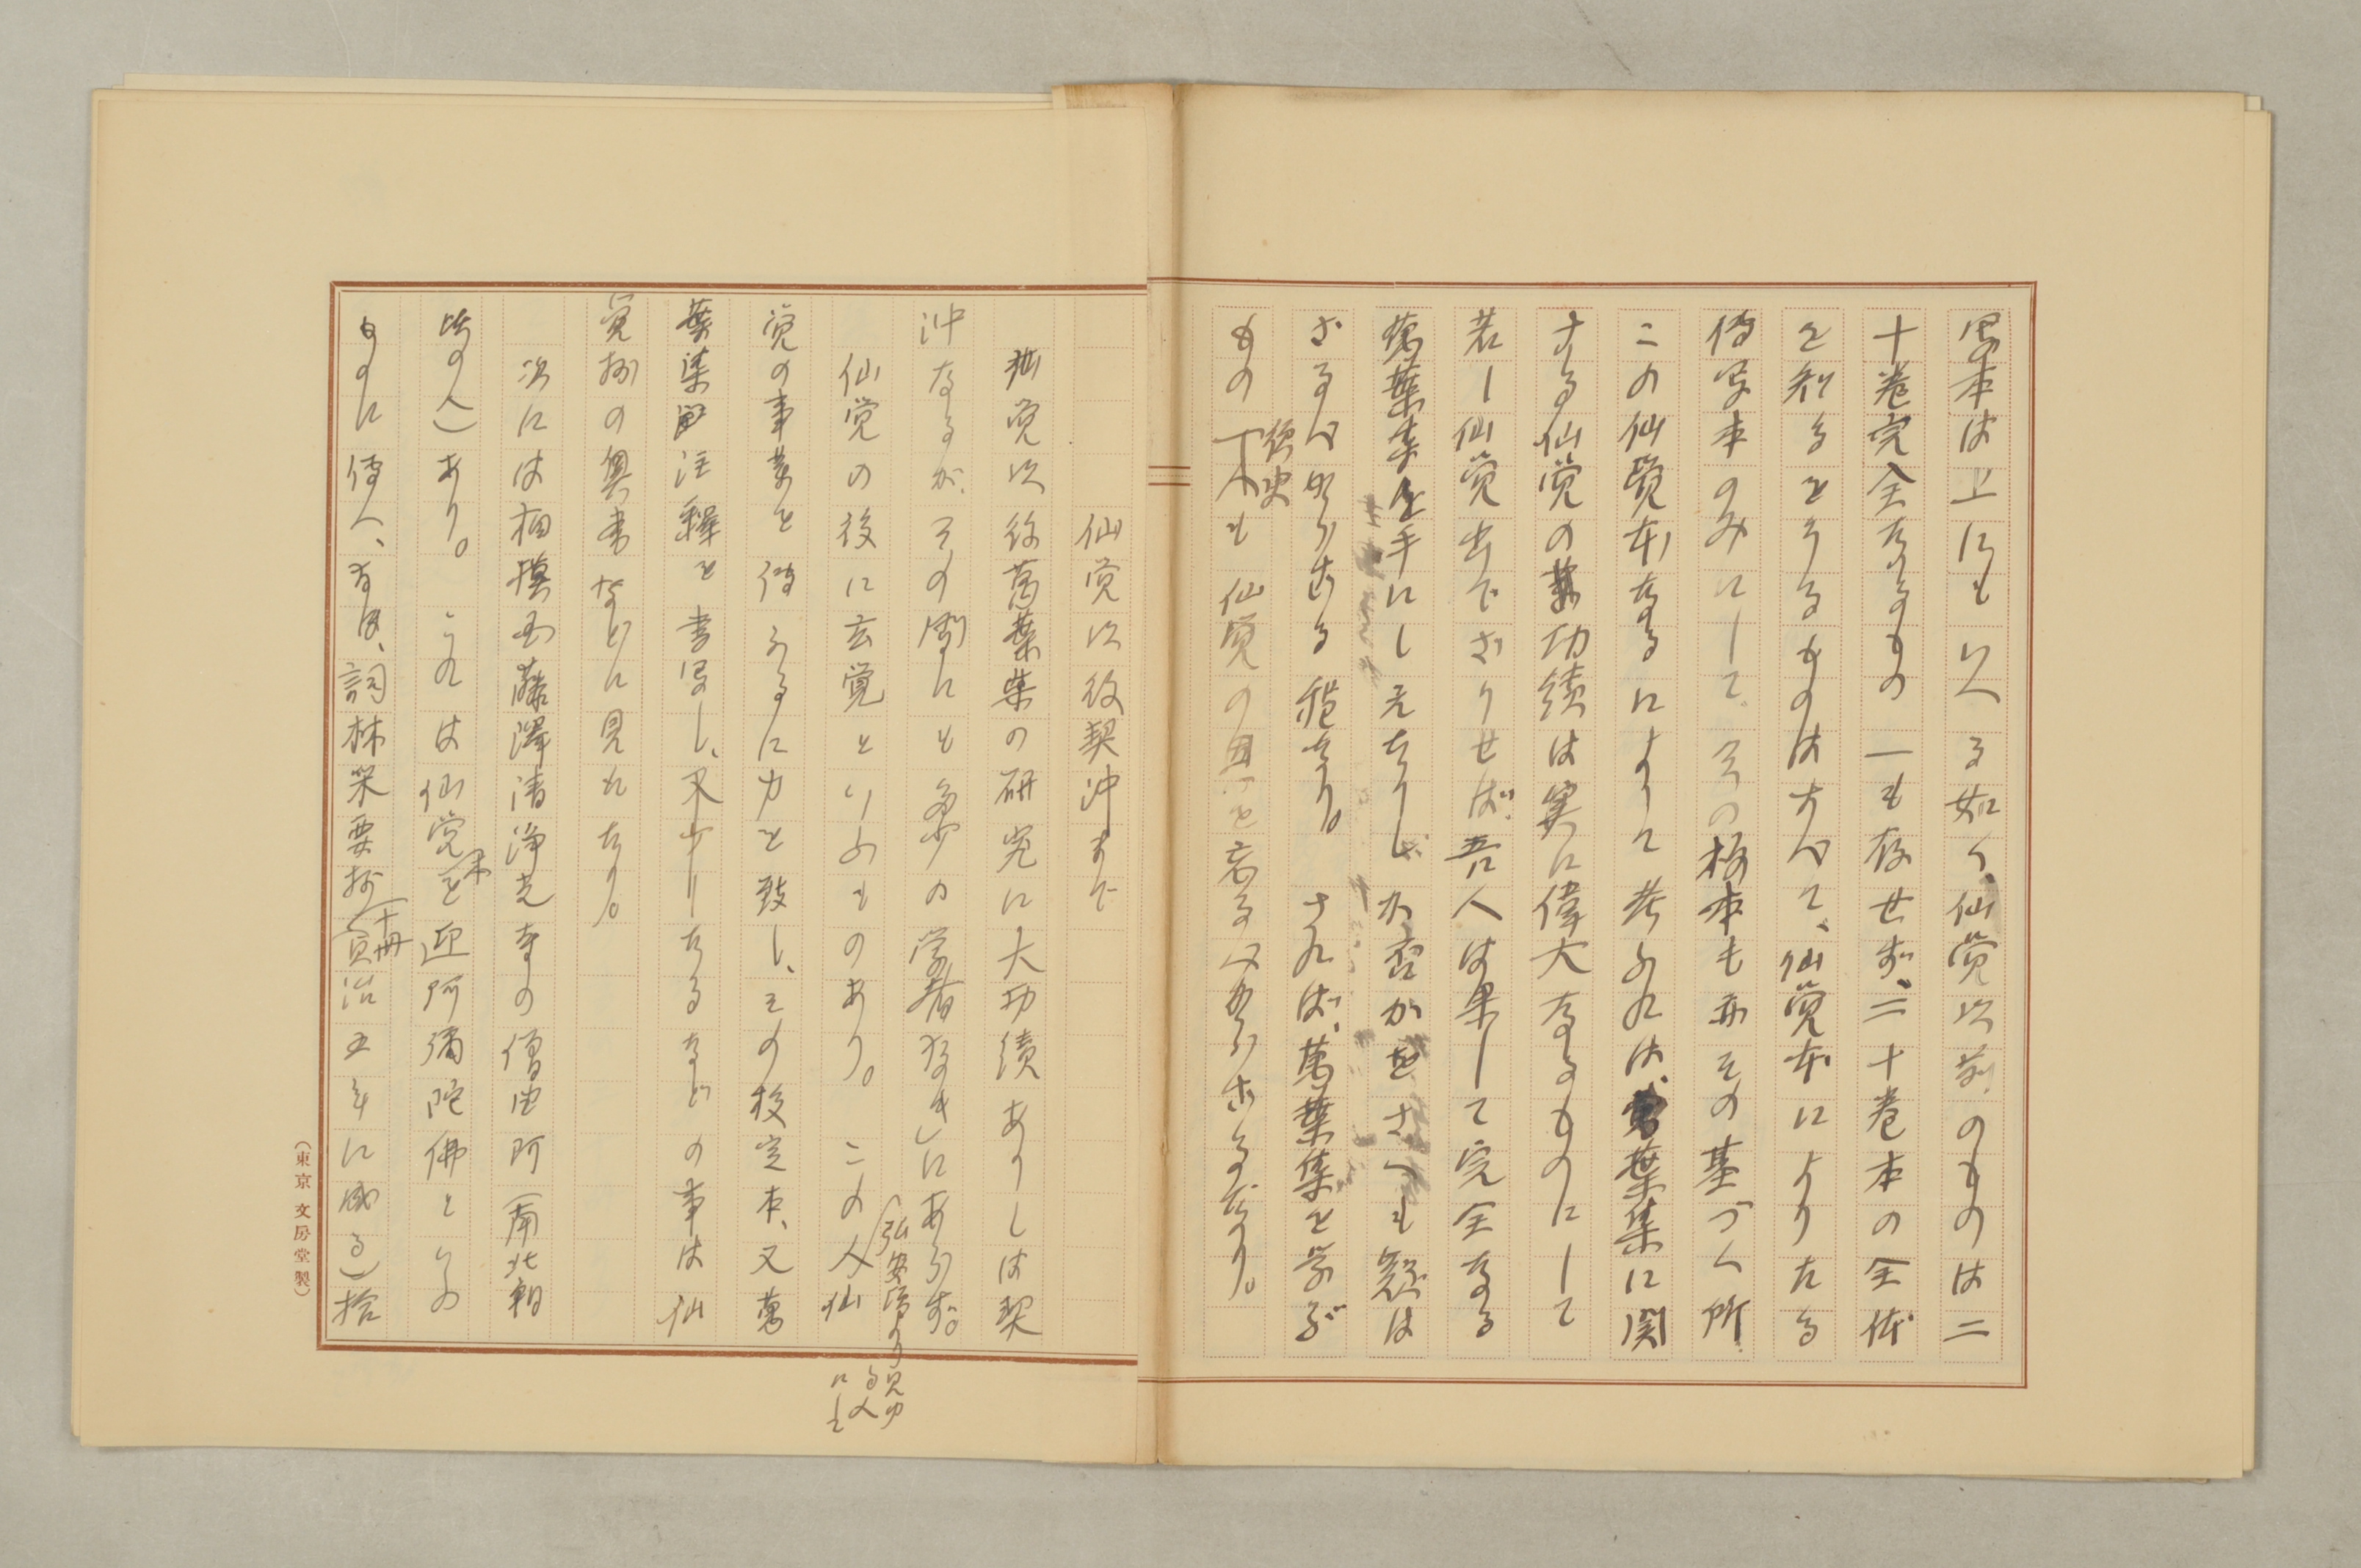 写本は上にもいへる如く、仙覚以前のものは二
十巻完全なるもの一も存せず、二十巻本の全体
を知るをうるものはすべて、仙覚本によりたる
伝写本のみにして、その板本も亦その基づく所
この仙覚本なるによりて考ふれば、萬葉集に関
する仙覚の功績は実に偉大なるものにして
若し仙覚出でざりせば、吾人は果して完全なる
萬葉集を手にしえたりしか否かをさへも疑は
ざるべからざる程なり。されば、萬葉集を学ぶ
もの後史一人も仙覚の恩を忘るべからざるなり。
仙覚以後契沖まで
仙覚以後萬葉集の研究に大功績ありしは契
沖なるが、その間にも多少の学者なきにあらず。
仙覚の後に玄覚といふものあり。この人仙
弘安頃より見ゆ
る人
にして
覚の事業を伝ふるに力を致し、その校定本、又萬
葉集註釋を書写し、又
たるなどの事は仙
覚抄の奥書などに見えたり。
次には相摸国藤澤清浄光寺の僧由阿(南北朝
時の人)あり。これは仙覚本を迎阿彌陀佛といふ
ものに伝へ、なほ、詞林采要抄(十冊貞治五年に成る)拾
(東京 文房堂製)